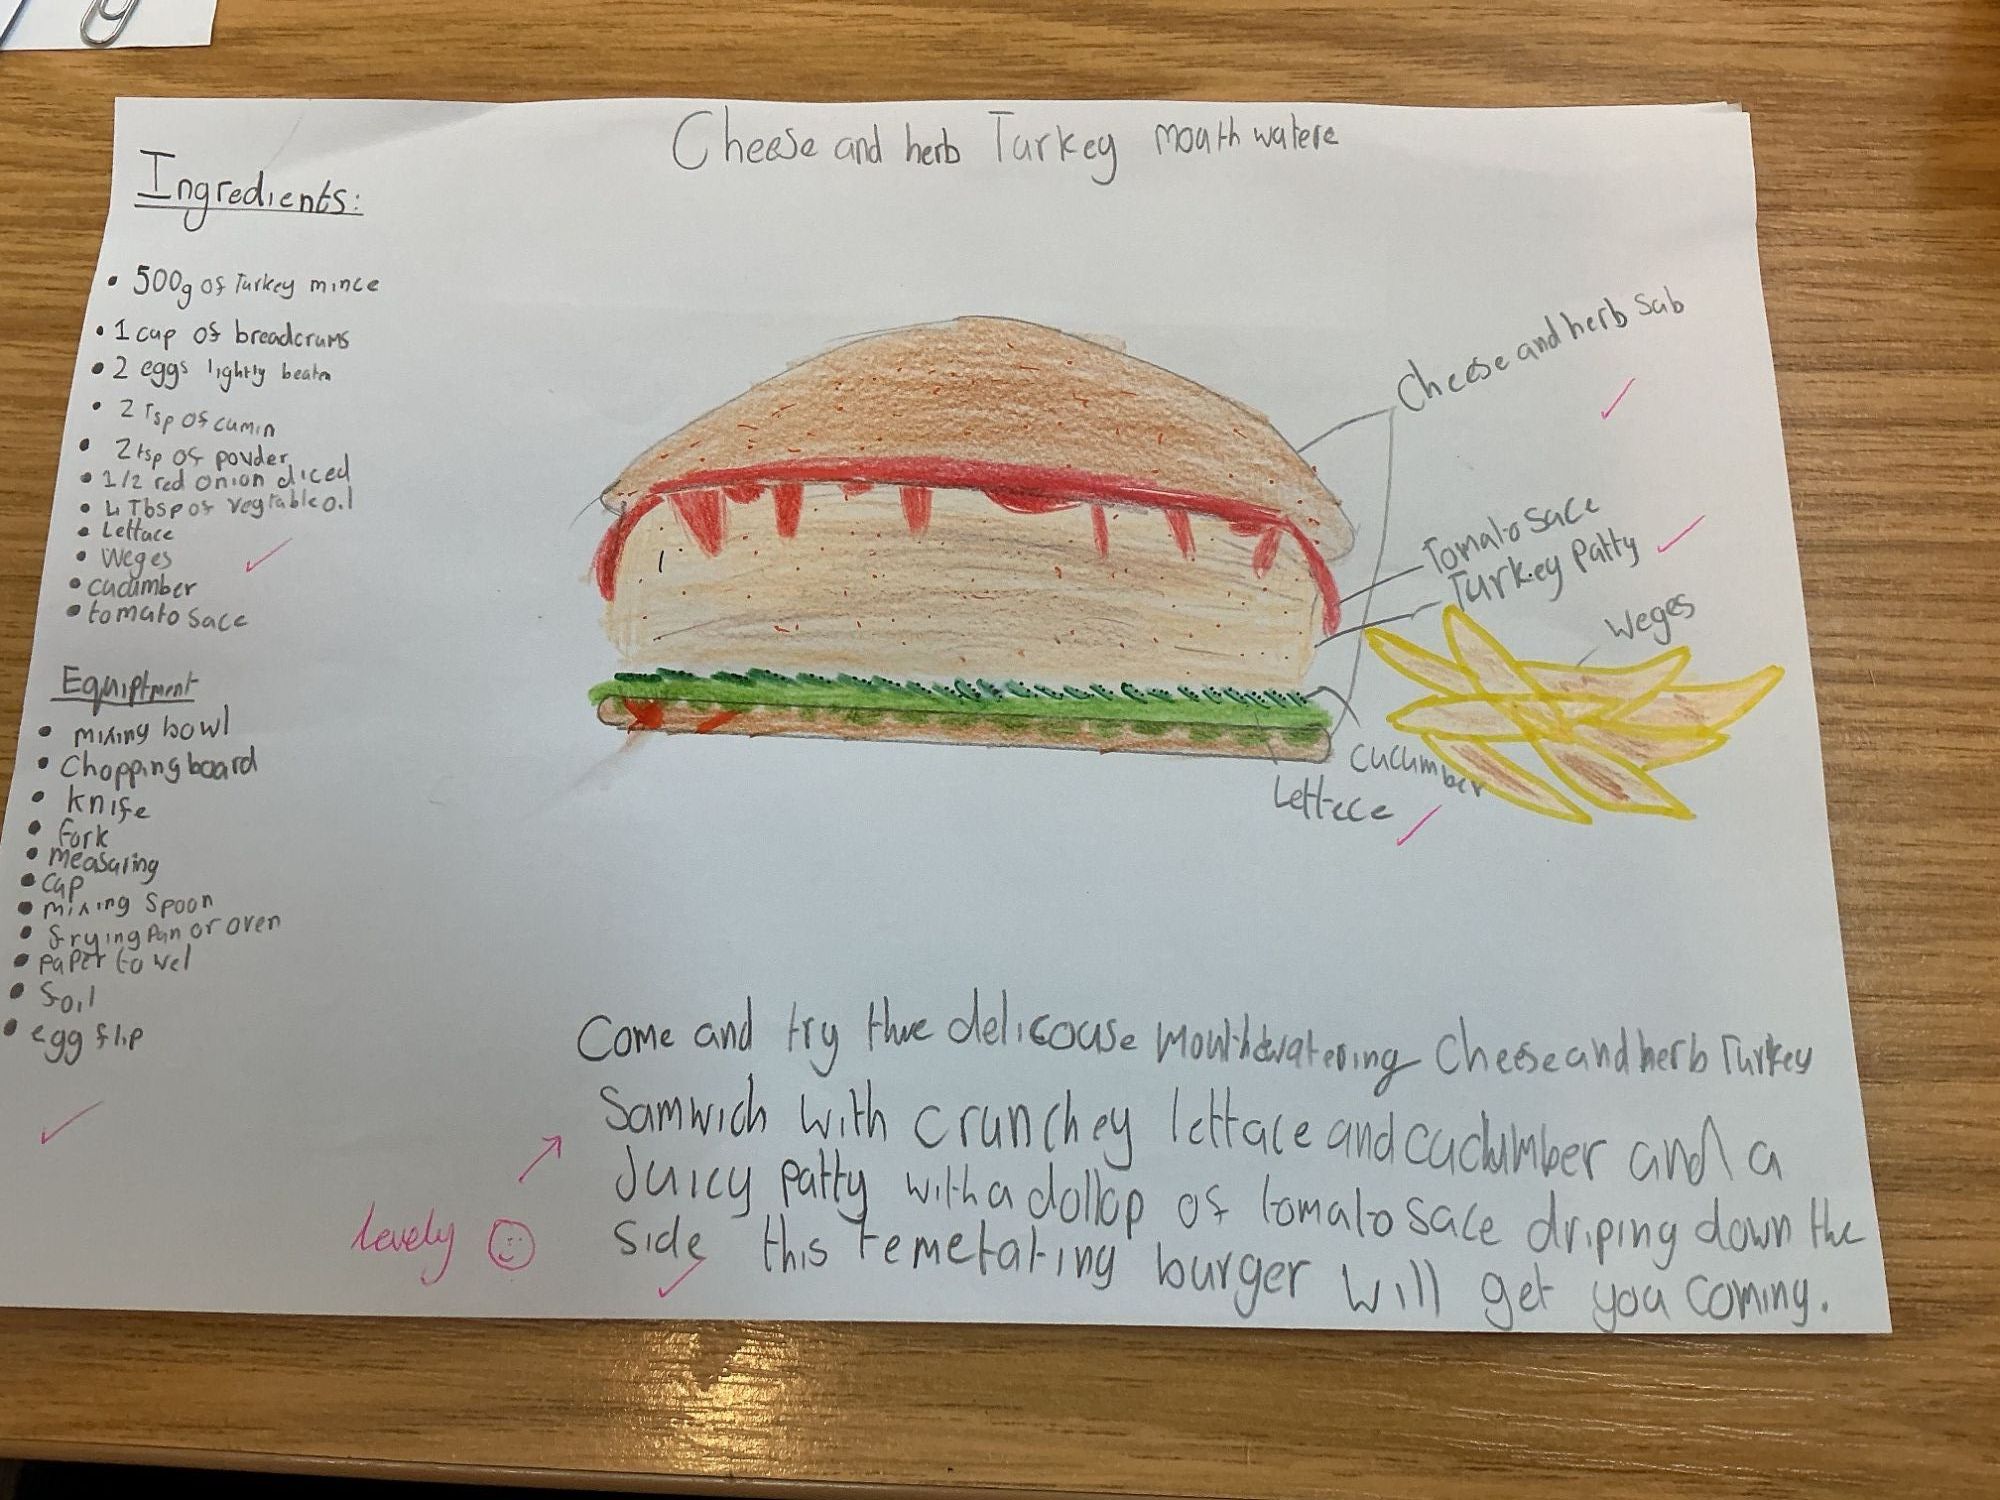 Cheese and herb Turkey mouth watere
Ingredients:
• 500g of Turkey mince
• 1 cup of breadcrums
• 2 eggs lightly beaten
• 2 Tsp of cumin
• 2 tsp of powder
• 1/2 red onion diced
• 4 Tbsp of vegtable oil
• Lettace
• Weges
• cucumber
• tomato sace
Equiptment
• mixing bowl
• Chopping board
• knife
• fork
• measuring
• cup
• mixing spoon
• frying pan or oven
• paper towel
• foil
• egg flip
Cheese and herb Sub
Tomato sace
Turkey Patty
Weges
Cucumber
Lettece
Come and try the delicouse mouthwatering Cheese and herb Turkey
Samwich with crunchey lettace and cucumber and a
Juicy patty with a dollop of tomato sace driping down the
side this temetating burger will get you coming.
lovely